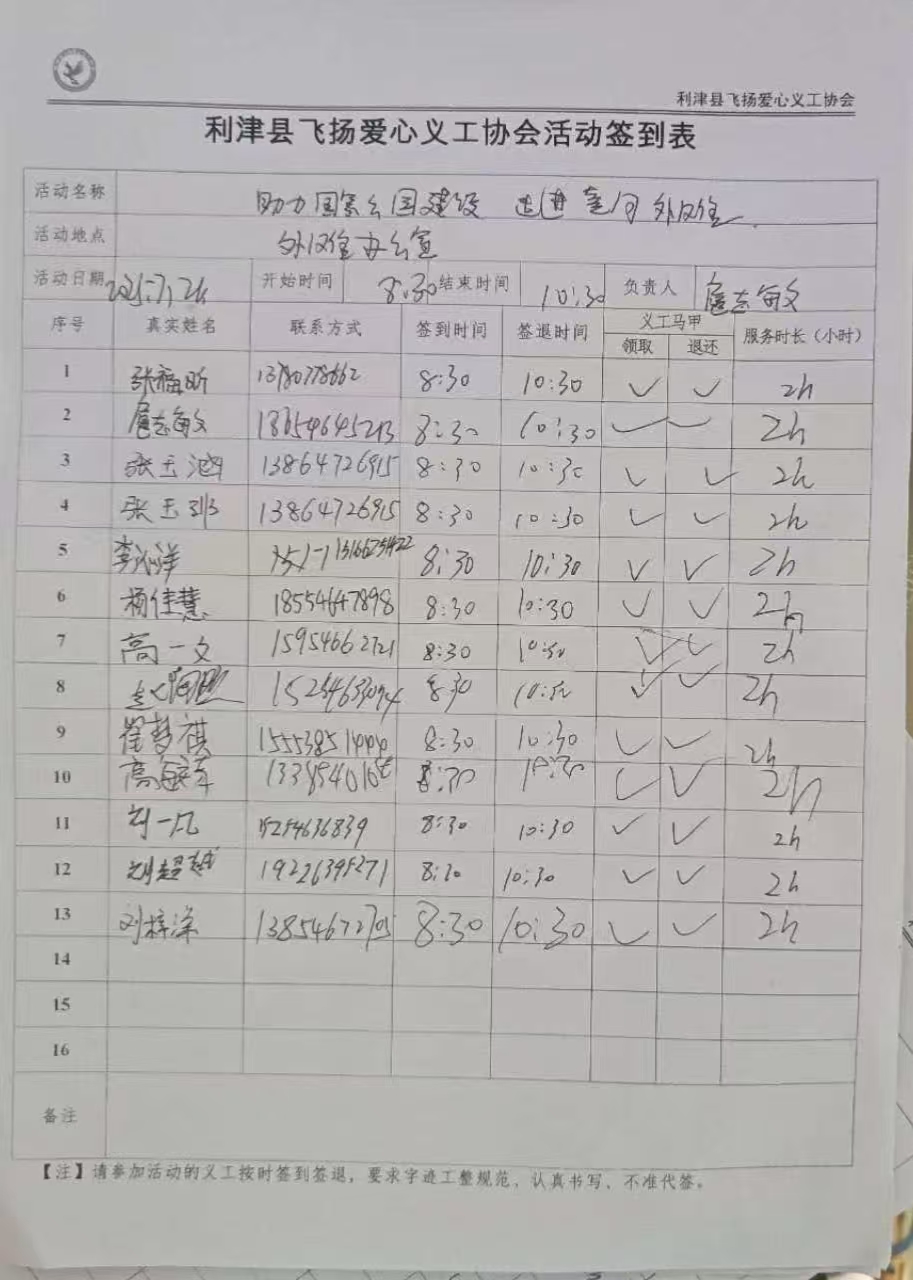 利津县飞扬爱心义工协会
利津县飞扬爱心义工协会活动签到表
活动名称 助力国家公园建设 走进 外
活动地点 外 办公室
活动日期 开始时间 8:30 结束时间 10:30 负责人 扈志敏
序号 真实姓名 联系方式 签到时间 签退时间 义工马甲 服务时长（小时）
领取 退还
1 8:30 10:30 ✓ ✓ 2h
2 扈志敏 8:30 10:30 ✓ ✓ 2h
3 张玉 13864726915 8:30 10:30 ✓ ✓ 2h
4 张玉 13864726915 8:30 10:30 ✓ ✓ 2h
5 8:30 10:30 ✓ ✓ 2h
6 杨佳慧 18554647898 8:30 10:30 ✓ ✓ 2h
7 高一文 15954662721 8:30 10:30 ✓ ✓ 2h
8 8:30 10:30 ✓ ✓ 2h
9 翟梦祺 8:30 10:30 ✓ ✓ 2h
10 8:30 10:30 ✓ ✓ 2h
11 刘一凡 15254636839 8:30 10:30 ✓ ✓ 2h
12 刘超越 8:30 10:30 ✓ ✓ 2h
13 刘梓涵 8:30 10:30 ✓ ✓ 2h
14
15
16
备注
【注】请参加活动的义工按时签到签退，要求字迹工整规范、认真书写、不准代签。